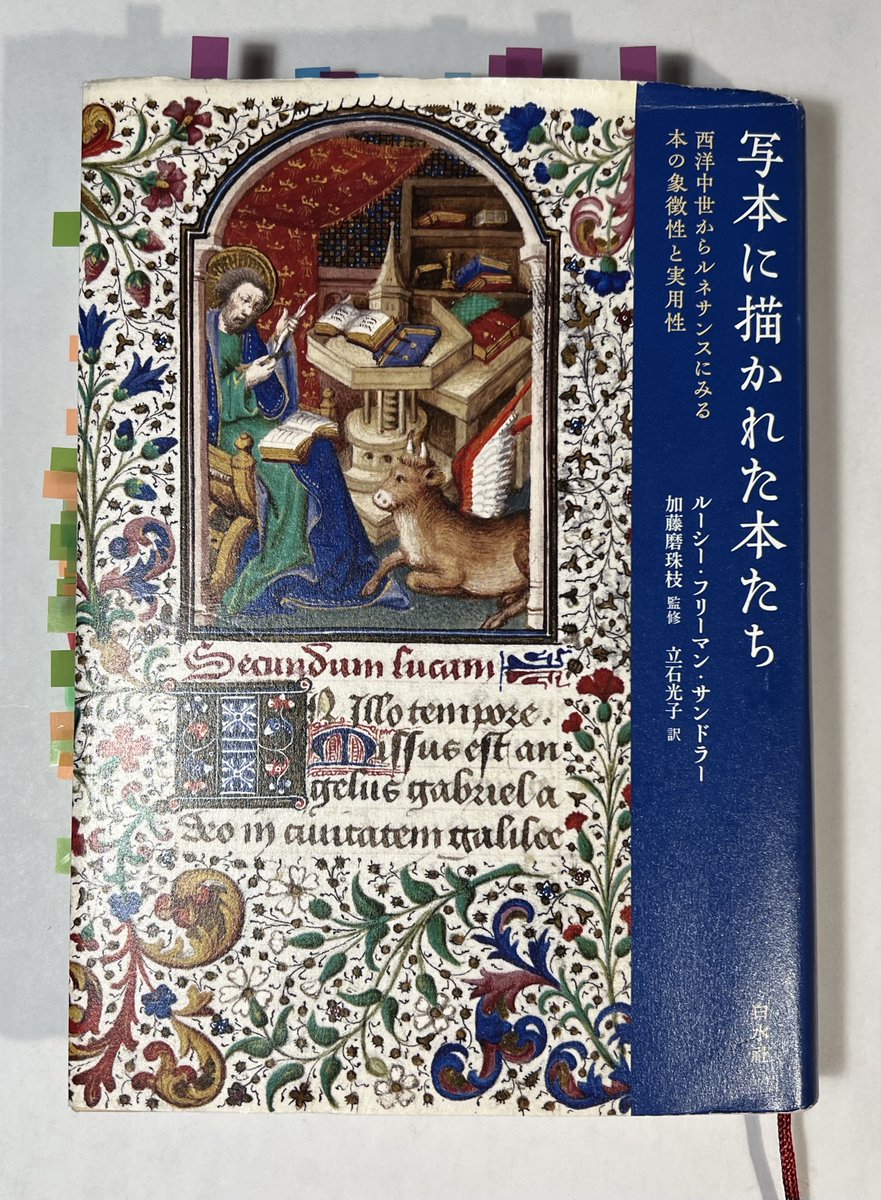 写本に描かれた本たち
西洋中世からルネサンスにみる
本の象徴性と実用性
ルーシー・フリーマン・サンドラー
加藤磨珠枝 監修 立石光子 訳
白水社
Secundum lucam
In Illo tempore.
Missus est an
gelus gabriel a
deo in ciuitatem galilee